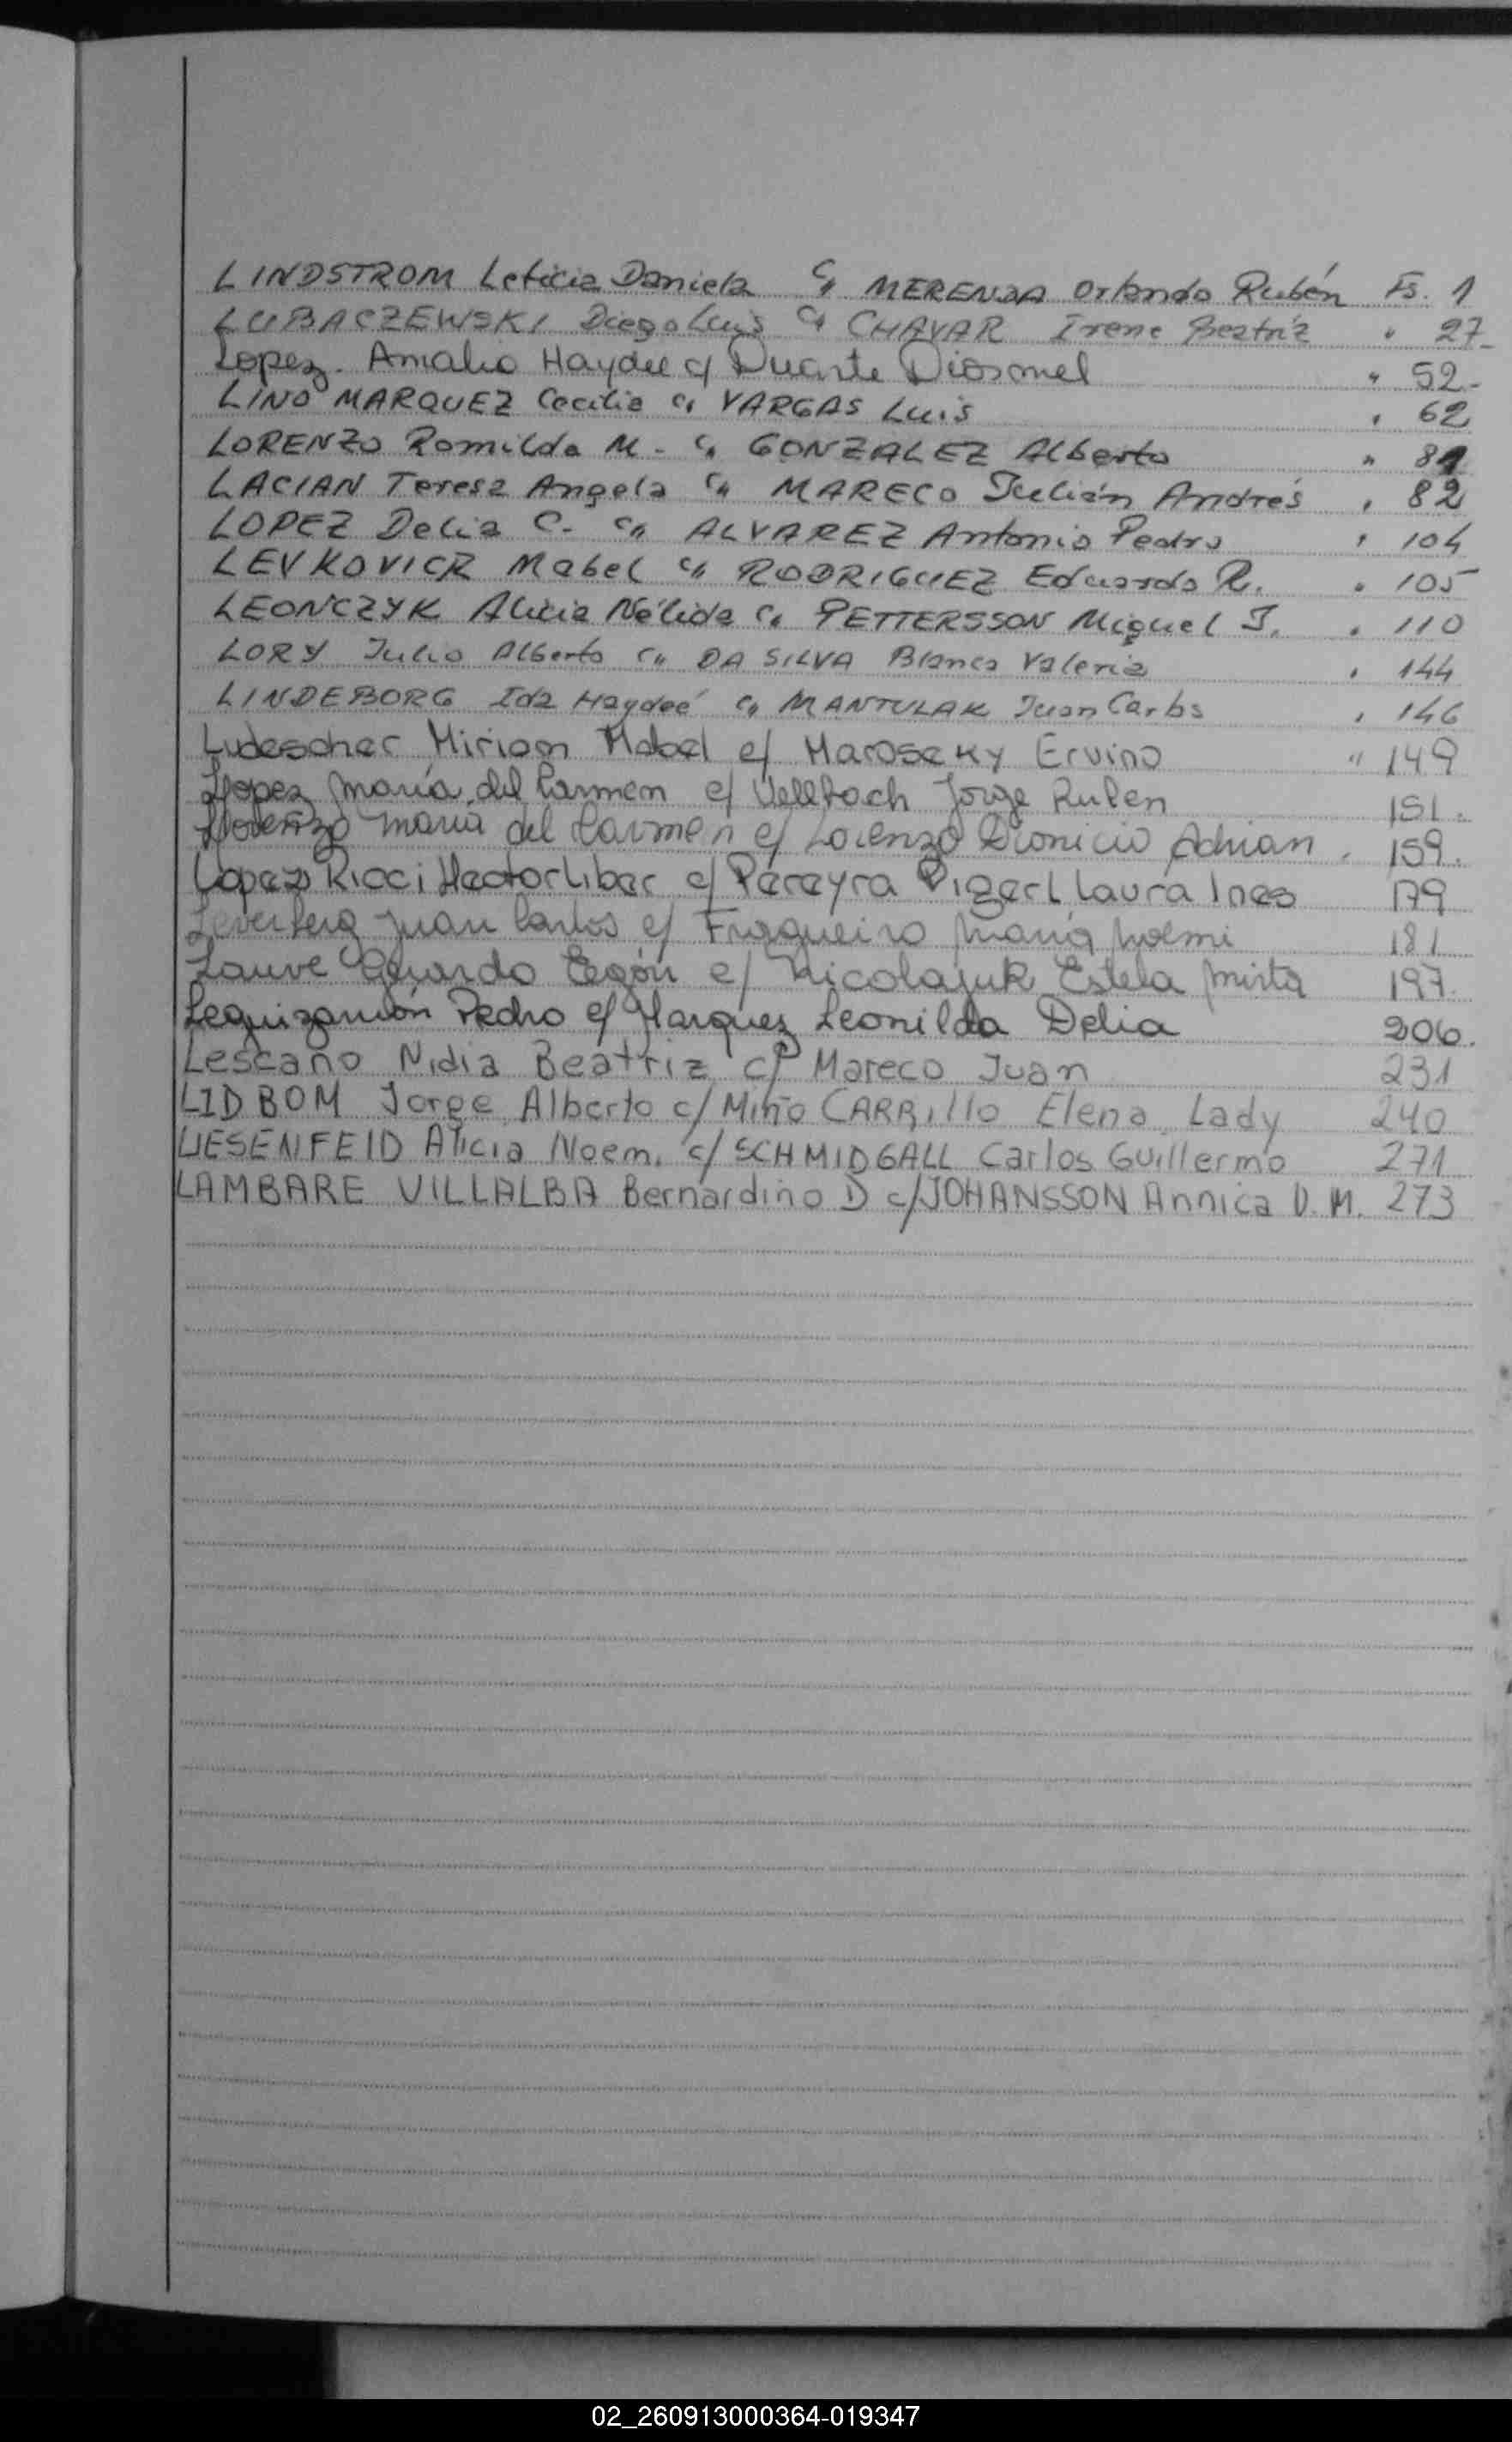 LINDSTROM Leticia Daniela c/ MERENDA Orlando Rubén Fs. 1
LUBACZEWSKI Diego Luis c/ CHAVAR Irene Beatriz " 27-
Lopez. Amalia Haydee c/ Duarte Diosmel " 52-
LINO MARQUEZ Cecilia c/ VARGAS Luis " 62
LORENZO Romilda M - c/ GONZALEZ Alberto " 81
LACIAN Teresa Angela c/ MARECO Julián Andrés " 82
LOPEZ Delia C- c/ ALVAREZ Antonio Pedro " 104
LEVKOVICZ Mabel c/ RODRIGUEZ Eduardo R. " 105
LEONCZYK Alicia Nélida c/ PETTERSSON Miguel J. " 110
LORY Julio Alberto c/ DA SILVA Blanca Valeria " 144
LINDEBORG Ida Haydeé c/ MANTULAK Juan Carlos " 146
Ludescher Miriam Mabel c/ Maroseky Ervino " 149
Llopez María del Carmen c/ Vellbach Jorge Ruben 151.
maria del Carmen c/ Lorenzo Dionicio Adrian . 159.
Lopez Ricci Hector Liber c/ Pereyra Vigerl Laura Ines 179
Juan Carlos c/ Frugueiro Maria Noemi 181
Lauve Egón c/ Nicolajuk Estela Mirta 197.
Leguizamón Pedro c/ Marquez Leonilda Delia 206.
Lescano Nidia Beatriz c/ Mareco Juan 231
LIDBOM Jorge Alberto c/ Miño CARRillo Elena Lady 240
LIESENFElD Alicia Noem. c/ SCHMIDGALL Carlos Guillermo 271
LAMBARE VILLALBA Bernardino D c/ JOHANSSON Annica V. M. 273
02_260913000364-019347